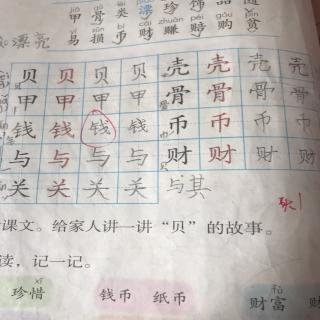 jiǎ gǔ piāo zhēn shì pǐn
甲 骨 类 漂 珍 饰 品
sǔn bì zhuàn péi gòu pín
漂亮 易 损 币 财 赚 赔 购 贫
贝 贝 贝 贝 壳 壳 壳 壳
甲 甲 甲 甲 骨 骨 骨 骨
钱 钱 钱 钱 币 币 币 币
与 与 与 与 财 财 财 财
关 关 关 关 与其
课文。给家人讲一讲“贝”的故事。
读,记一记。
xī fù
珍惜 钱币 纸币 财富